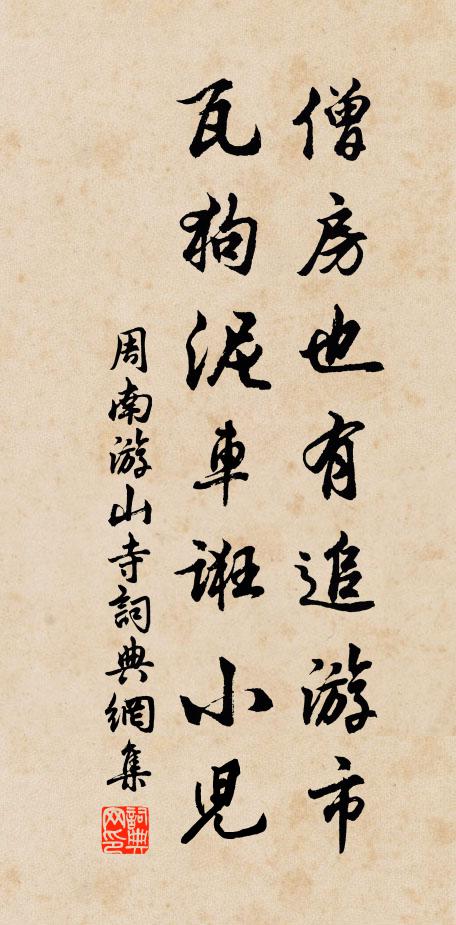 僧房也有追游市
瓦狗泥車誑小兒
周南游山寺詞典網集
詞典网印